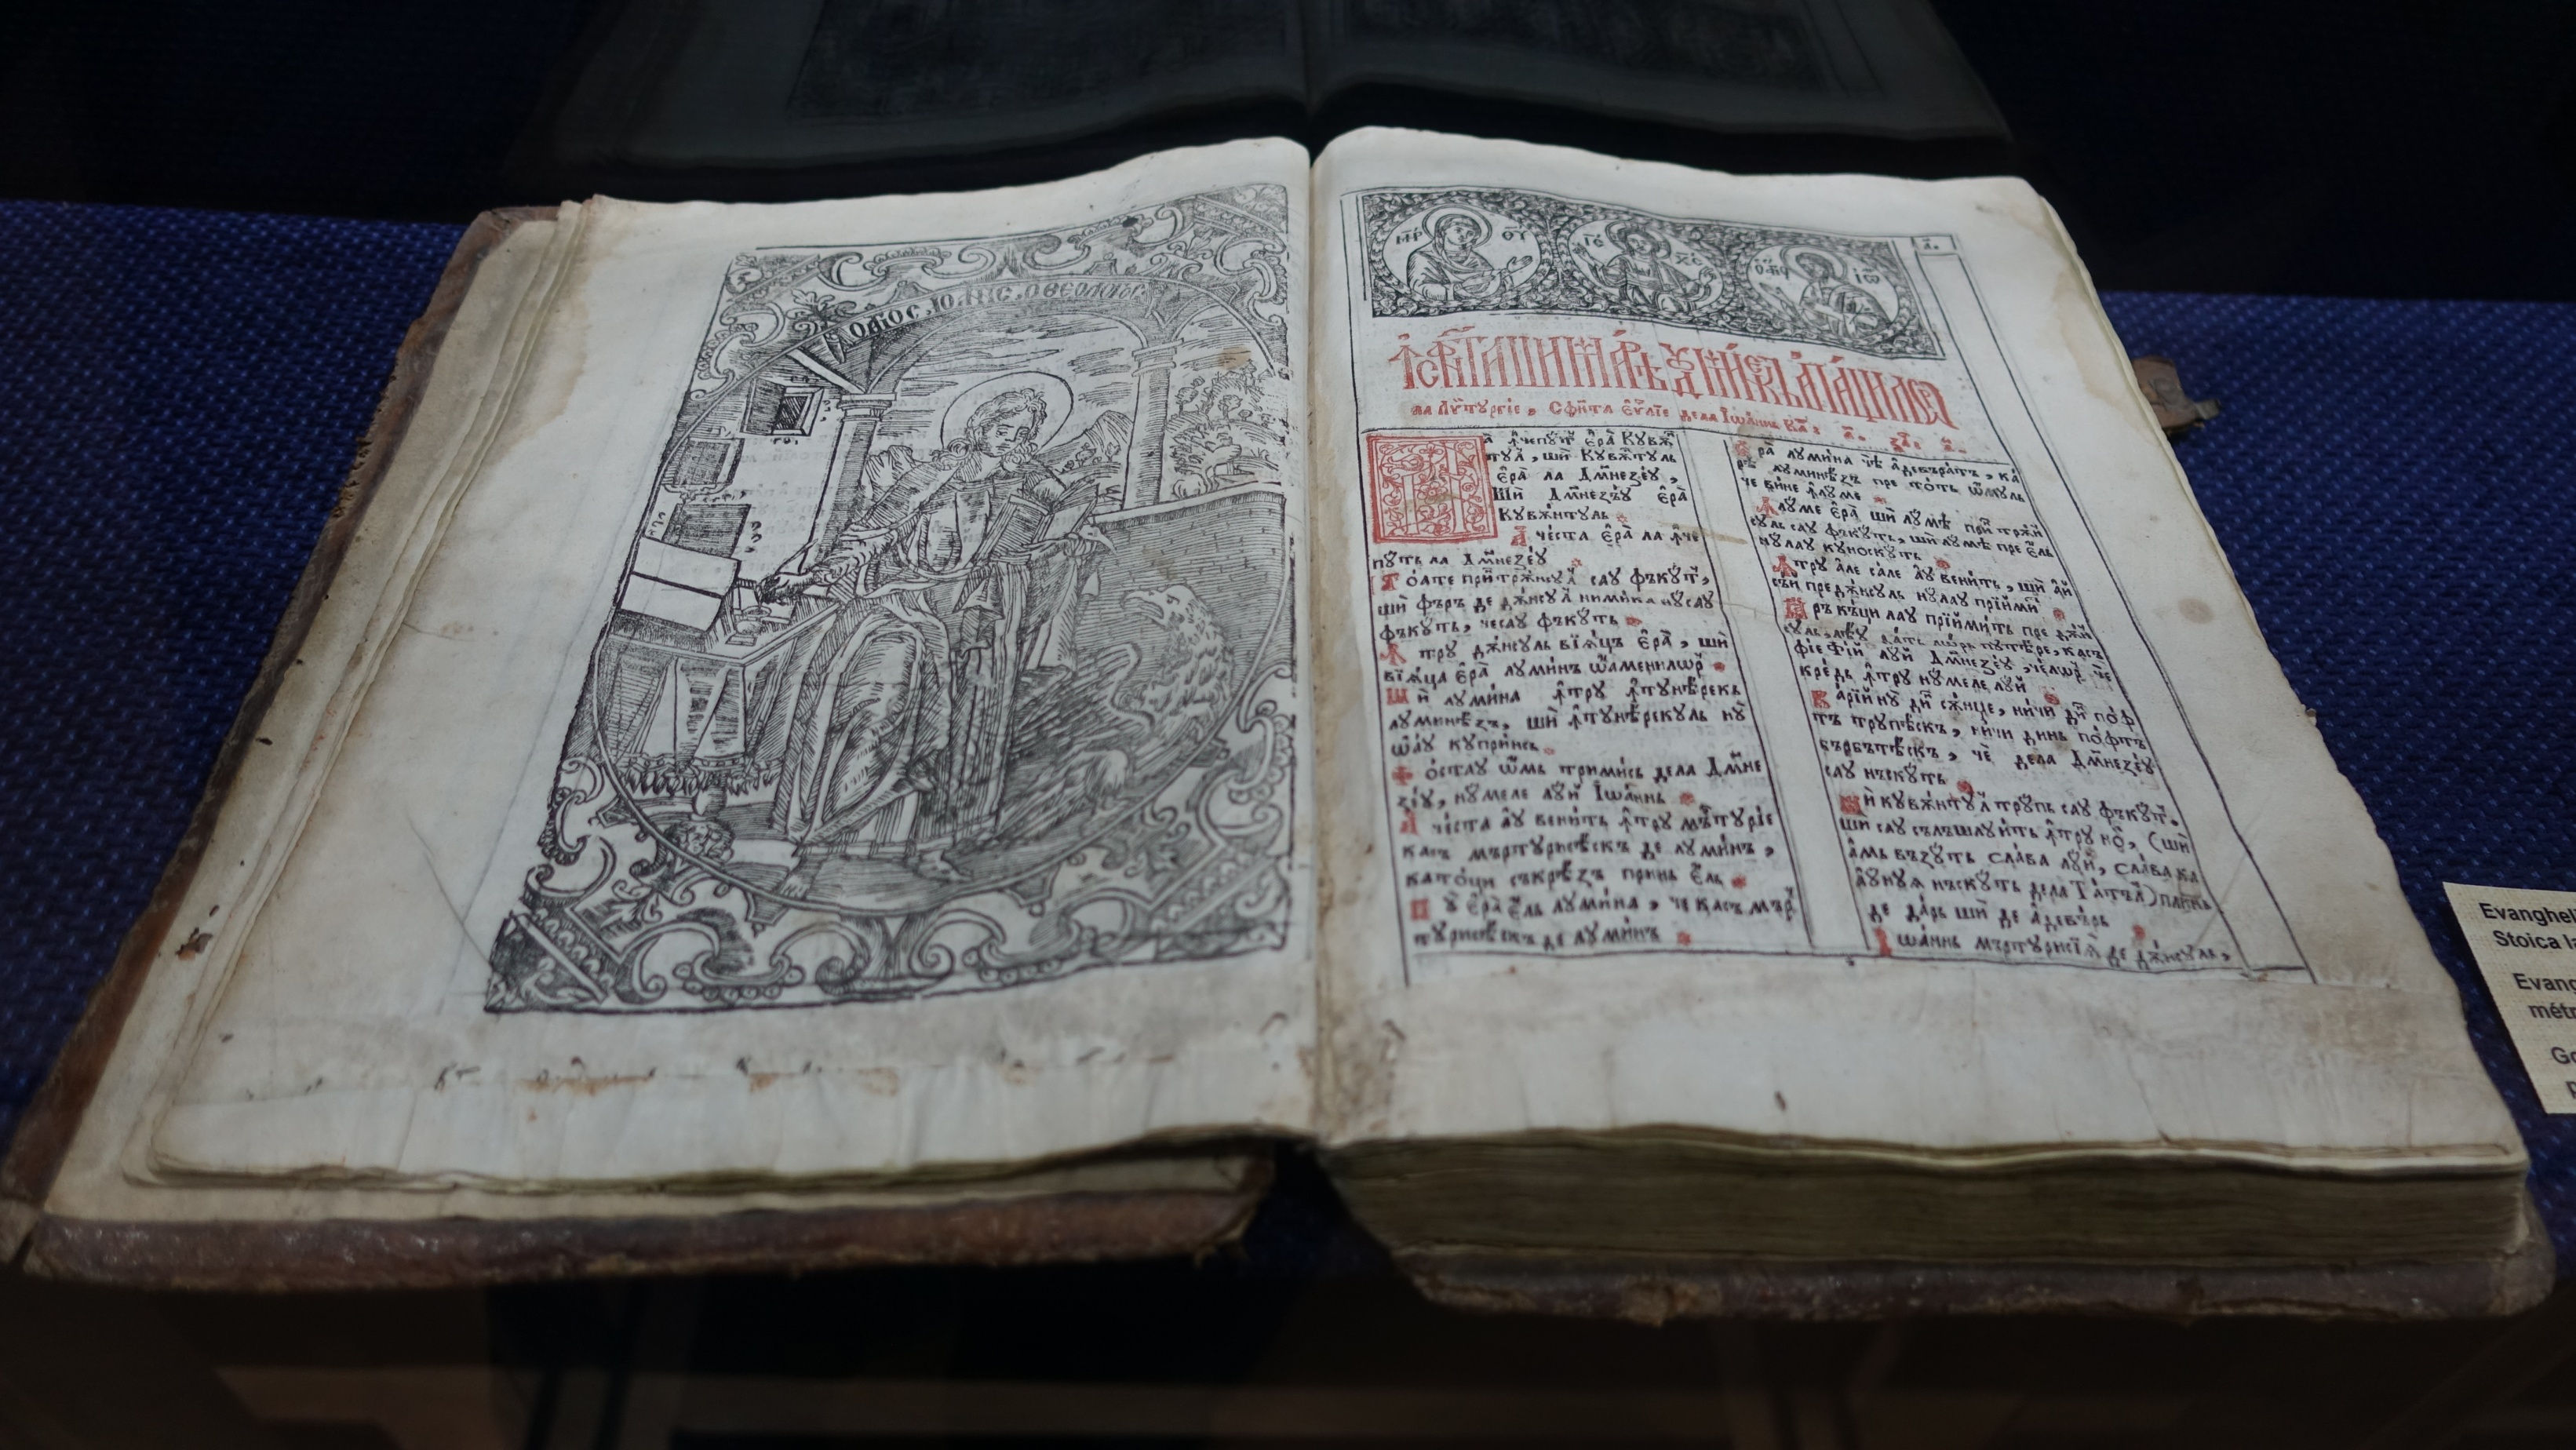 Ѻ АГІОС ІѠАННС Ѻ ѲЕОЛОГОС
МР ѲУ
ІС ХС
ІѠ
ла Лѷтургіе, Сфн҃та Еѵ҃ліе дела Іѡаннь
а ꙟчепꙋ́т є҆ра̀ Кꙋвѫн
тꙋл, шѝ Кꙋвѫ́нтꙋль
є҆ра̀ ла Дм҃незеꙋ,
Шѝ Дм҃незъꙋ є҆ра̀
Кꙋвѫ́нтꙋль
Ачѣста є҆ра̀ ла ꙟче
пꙋть ла Дм҃незеꙋ
Тоате при́нтрѫнсꙋл саꙋ фъкꙋт,
шѝ фъръ де дѫнсꙋл нимика нꙋсаꙋ
фъкꙋть, чесаꙋ фъкꙋть
Ꙟтрꙋ дѫнсꙋль вїѧцъ є҆ра̀, шѝ
вїѧца є҆ра̀ лꙋминъ ѡаменилѡр
Шѝ лꙋмина ꙟтрꙋ ꙟтꙋнѣрекъ
лꙋминѣзъ, шѝ ꙟтꙋнѣрекꙋль нꙋ
ѡ҆аꙋ кꙋпринсь
Фостаꙋ ѡ҆мь тримись дела Дм҃не
зеꙋ, нꙋмеле лꙋи Іѡаннь
Ачѣста аꙋ венить ꙟтрꙋ мъртꙋріе
касъ мъртꙋрисѣскъ де лꙋминъ,
катоци съкрѣзъ принь є҆ль
Нꙋ є҆ра̀ є҆ль лꙋмина, че касъ мър
тꙋрисѣскъ де лꙋминъ
Єра̀ лꙋмина чѣ адевъратъ, ка
рѣ лꙋминѣзъ пре тоть ѡ҆мꙋль
че вине ꙟлꙋме
Ꙟлꙋме є҆ра̀ шѝ лꙋмѣ при́н трѫн
сꙋль саꙋ фъкꙋть, шѝ лꙋмѣ пре є҆ль
нꙋлаꙋ кꙋноскꙋть
Ꙟтрꙋ але сале аꙋ венить, шѝ ай
съи предѫнсꙋль нꙋлаꙋ прїимит
Іаръ къци лаꙋ прїимить пре дѫн
сꙋль, лѣꙋ дать лѡрь пꙋтѣре, касъ
фіе фїй лꙋй Дм҃незеꙋ, челѡр че
кредь ꙟтрꙋ нꙋмеле лꙋй
Карїй нꙋ дин сѫнџе, ничи дин поф
тъ трꙋпѣскъ, ничи динь пофтъ
бърбътѣскъ, че дела Дм҃незеꙋ
саꙋ нъскꙋть
Шѝ кꙋвѫнтꙋл трꙋпь саꙋ фъкꙋт.
шѝ саꙋ сълъшлꙋить ꙟтрꙋ но́й, (шѝ
амь възꙋть слава лꙋй, слава ка
аꙋнꙋѧ нъскꙋть дела Татъл) плинь
де дарь шѝ де адевърь
Іѡаннь мъртꙋрисїѧ де дѫнсꙋль,
Evanghel
Stoica la
Evang
métr